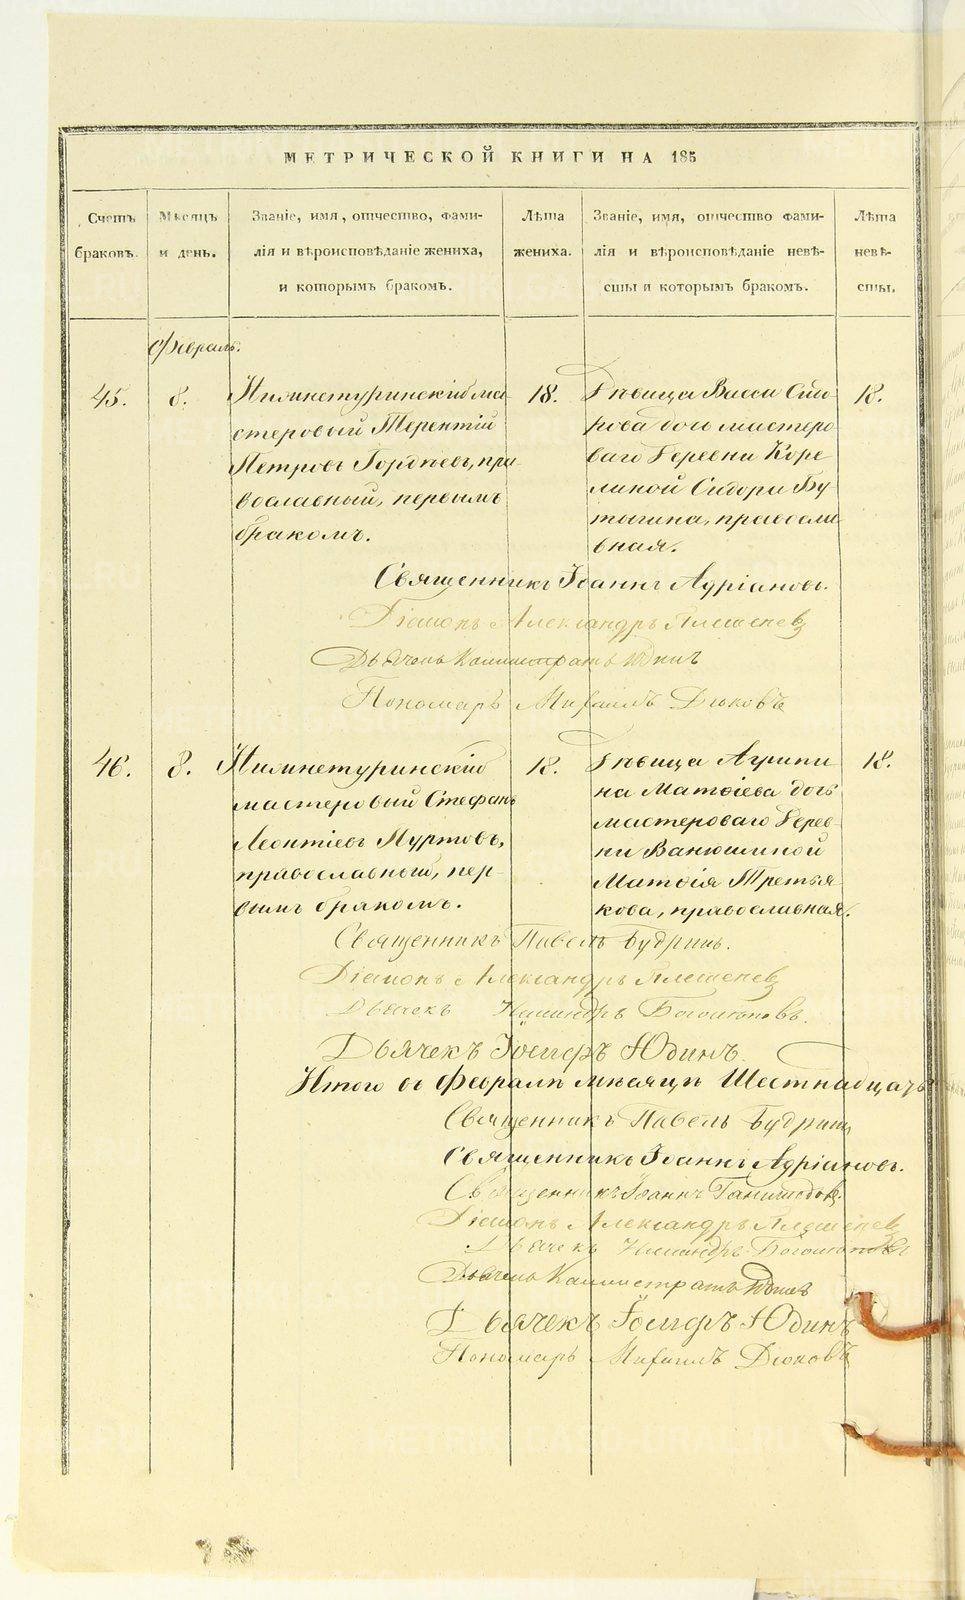 МЕТРИЧЕСКОЙ КНИГИ НА 185
Счетъ браковъ.
Мѣсяцъ и день.
Званіе, имя, отчество, фами-
лія и вѣроисповѣданіе жениха,
и которымъ бракомъ.
Лѣта
жениха.
Званіе, имя, отчество фами-
лія и вѣроисповѣданіе невѣ-
сты и которымъ бракомъ.
Лѣта
невѣ-
сты.
Февраль.
45.
8.
Нижнетуринскій ма
стеровый Терентій
Петровъ Гордѣевъ, пра
вославный, первымъ
бракомъ.
18.
Дѣвица Васса Сидо
рова дочь мастеро
ваго Деревни Коре
линой Сидора Бу
тыгина, правосла
вная.
18.
Священникъ Іоаннъ Адріановъ.
Діаконъ Александръ
Дьячекъ Каллистратъ Юдинъ
Пономарь Михаилъ Дюковъ
46.
8.
Нижнетуринскій
мастеровый Стефанъ
Леонтіевъ
православный, пер-
вымъ бракомъ.
18.
Дѣвица Агрипи
на Матѳіева дочь
мастероваго Дерев
ни Ванюшиной
Матѳія Третья
кова, православная.
18.
Священникъ Павелъ Будринъ.
Діаконъ Александръ
Дьячекъ
Дьячекъ Іосифъ Юдинъ.
Итого въ Февралѣ мѣсяцѣ Шестнадцать
Священникъ Павелъ Будринъ
Священникъ Іоаннъ Адріановъ.
Священникъ Іоаннъ
Діаконъ Александръ
Дьячекъ
Дьячекъ Каллистратъ Юдинъ
Дьячекъ Іосифъ Юдинъ
Пономарь Михаилъ Дюковъ